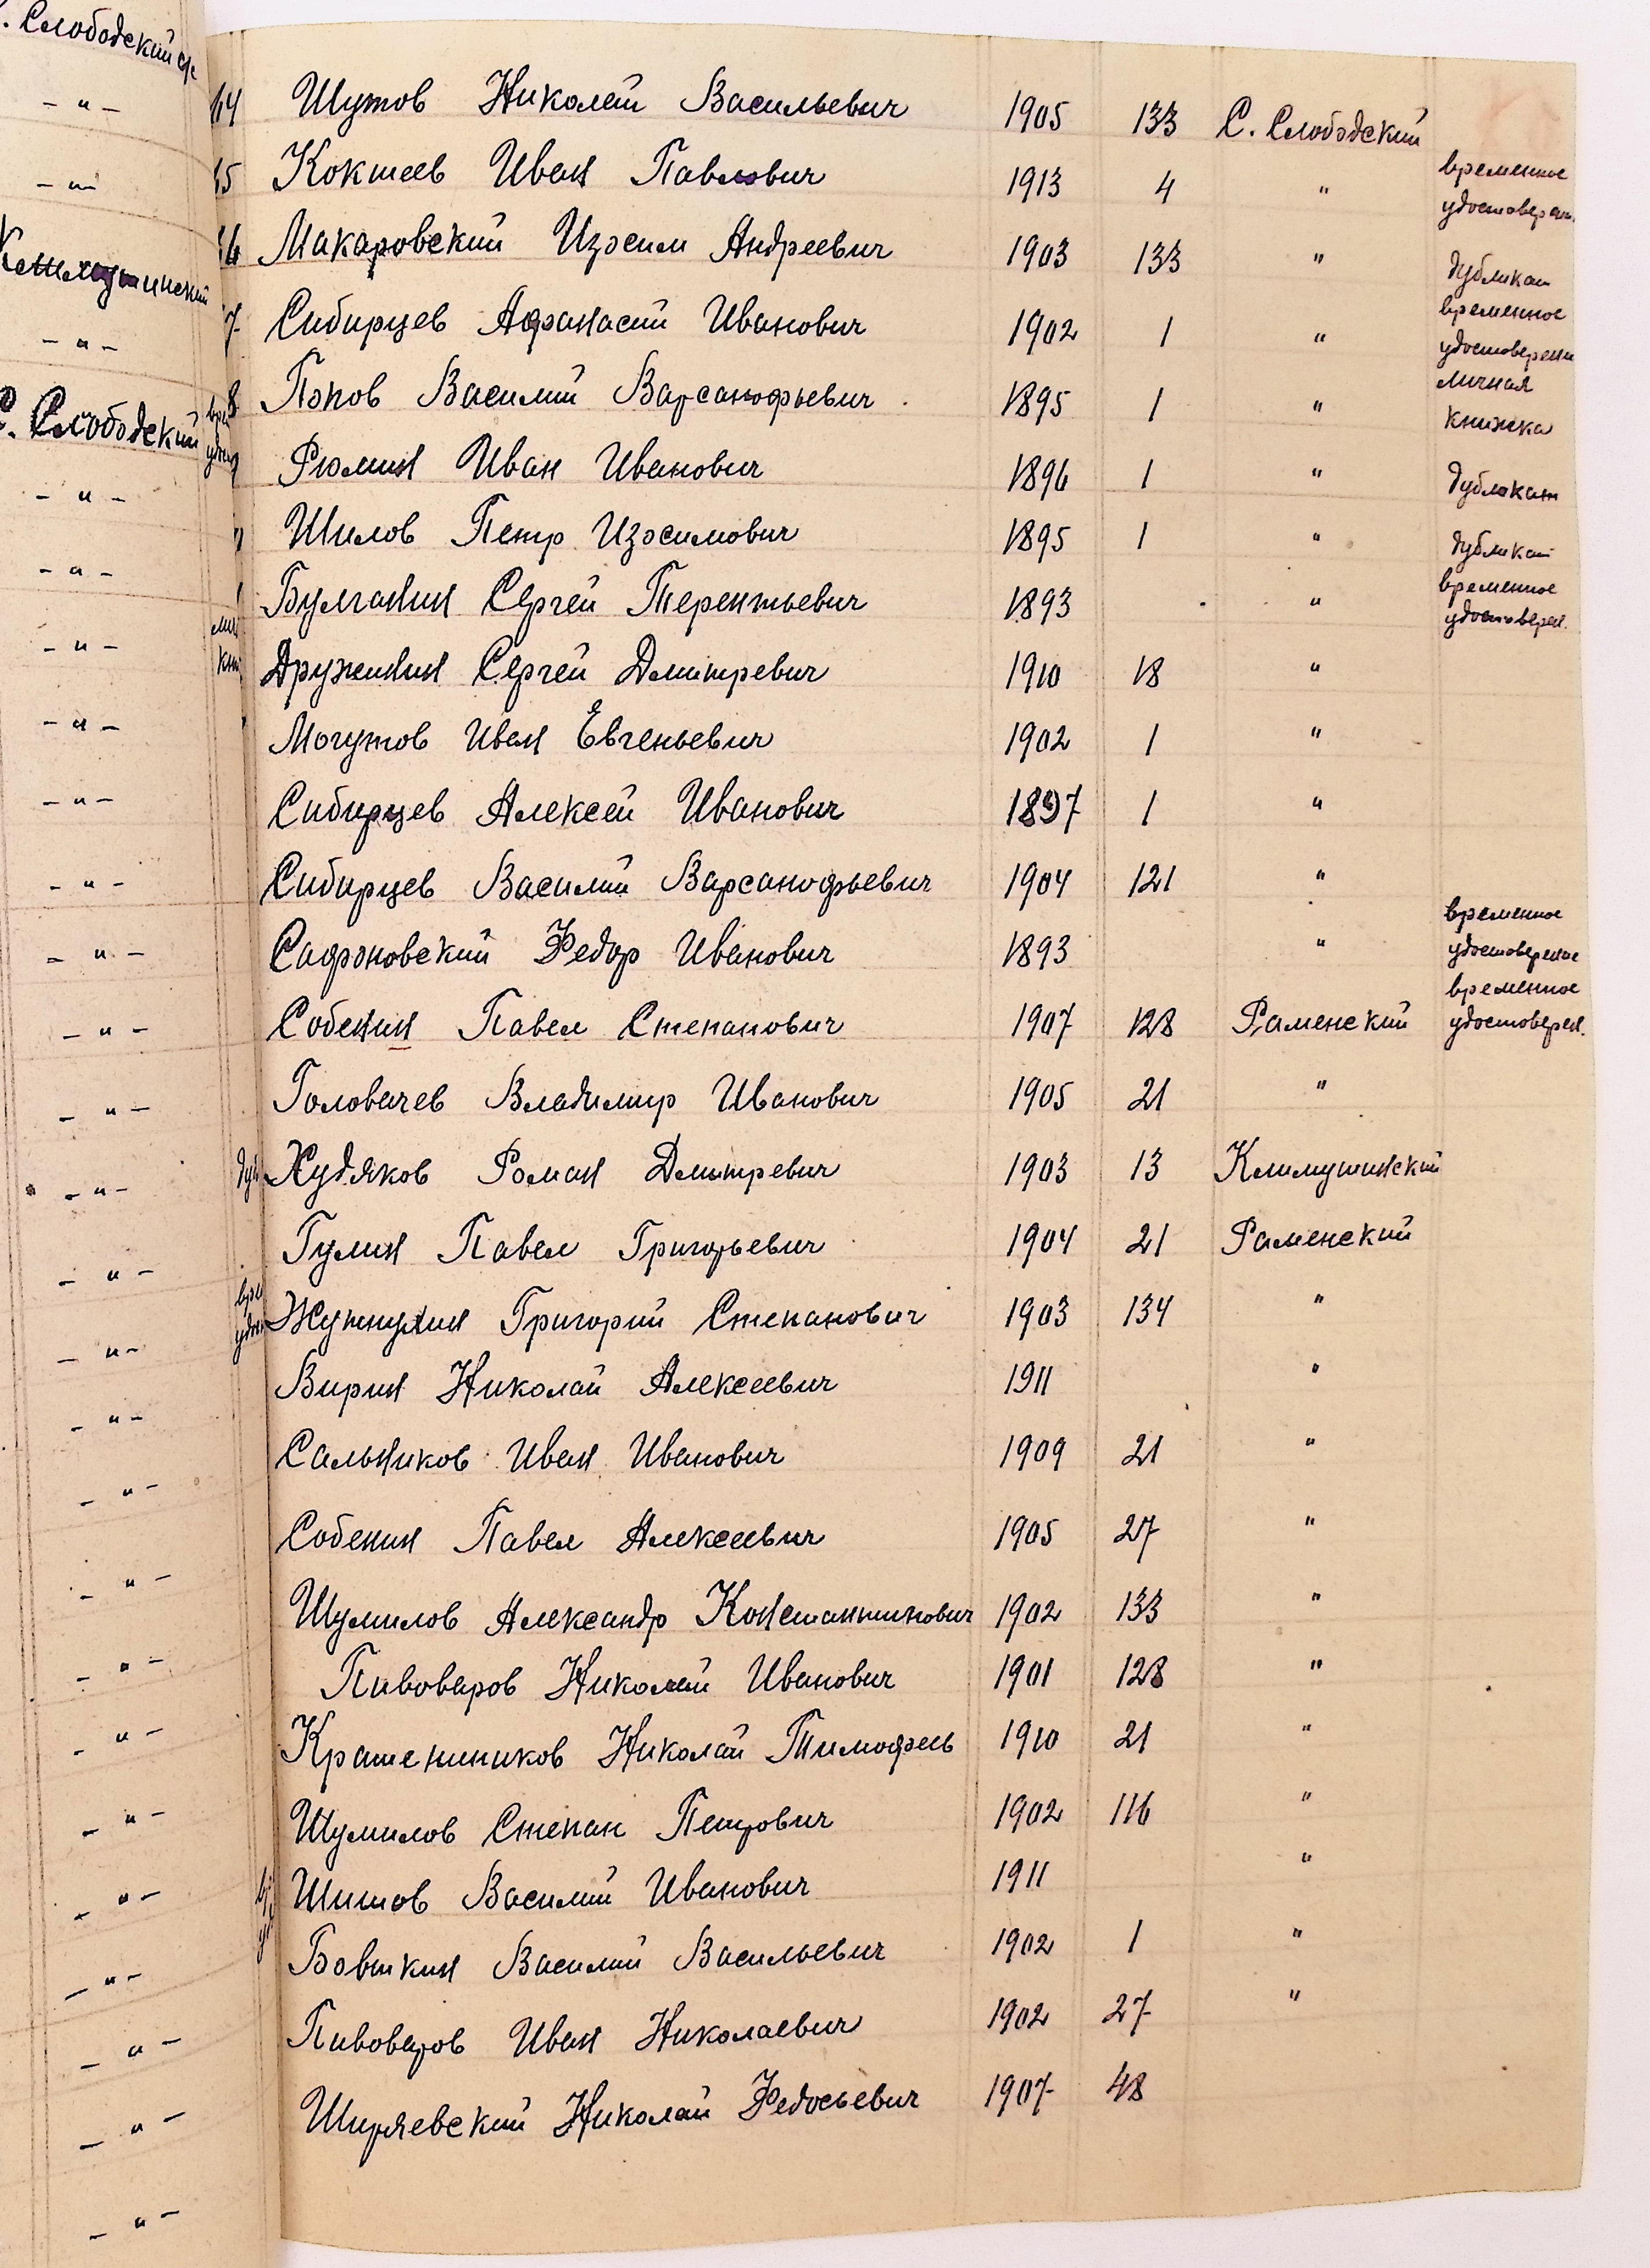 . Слободский с/с
44 Шутов Николай Васильевич 1905 133 С. Слободский
45 Кокшеев Иван Павлович 1913 4 " временное удостоверен.
46 Макаровский Изосим Андреевич 1903 133 " дубликат
7 Сибирцев Афанасий Иванович 1902 1 " временное удостоверени
8 Попов Василий Варсанофьевич 1895 1 " личная книжка
9 Рюмин Иван Иванович 1896 1 " дубликат
Шилов Петр Изосимович 1895 1 " дубликат
Булганин Сергей Терентьевич 1893 " временное удостоверен.
Дружинин Сергей Дмитревич 1910 18 "
Могутов Иван Евгеньевич 1902 1 "
Сибирцев Алексей Иванович 1897 1 "
Сибирцев Василий Варсанофьевич 1904 121 "
Сафроновский Федор Иванович 1893 " временное удостоверение
Собенин Павел Степанович 1907 128 Раменский временное удостоверен.
Головачев Владимир Иванович 1905 21 "
Худяков Роман Дмитревич 1903 13 Климушинский
Гулин Павел Григорьевич 1904 21 Раменский
Григорий Степанович 1903 134 "
Вирин Николай Алексеевич 1911 "
Сальников Иван Иванович 1909 21 "
Собенин Павел Алексеевич 1905 27 "
Шумилов Александр Константинович 1902 133 "
Пивоваров Николай Иванович 1901 128 "
Крашенинников Николай Тимофеев 1910 21 "
Шумилов Степан Петрович 1902 116 "
Шишов Василий Иванович 1911 "
Бовыкин Василий Васильевич 1902 1 "
Пивоваров Иван Николаевич 1902 27 "
Ширяевский Николай Федосьевич 1907 48